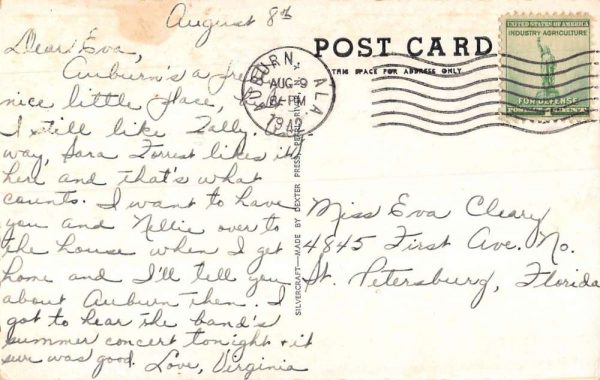 August 8th
Dear Eva,
Auburn's a
nice little place,
I still like Tally.
way, Sara Forrest likes it
here and that's what
counts. I want to have
you and Nellie over to
the house when I get
home and I'll tell you
about Auburn then. I
got to hear the band's
summer concert tonight & it
sure was good. Love, Virginia
POST CARD
THIS SPACE FOR ADDRESS ONLY
AUBURN, ALA.
AUG 9
PM
1942
UNITED STATES OF AMERICA
INDUSTRY AGRICULTURE
FOR DEFENSE
SILVERCRAFT—MADE BY DEXTER PRESS, PEARL RIVER,
Miss Eva Cleary
4845 First Ave. No.
St. Petersburg, Florida